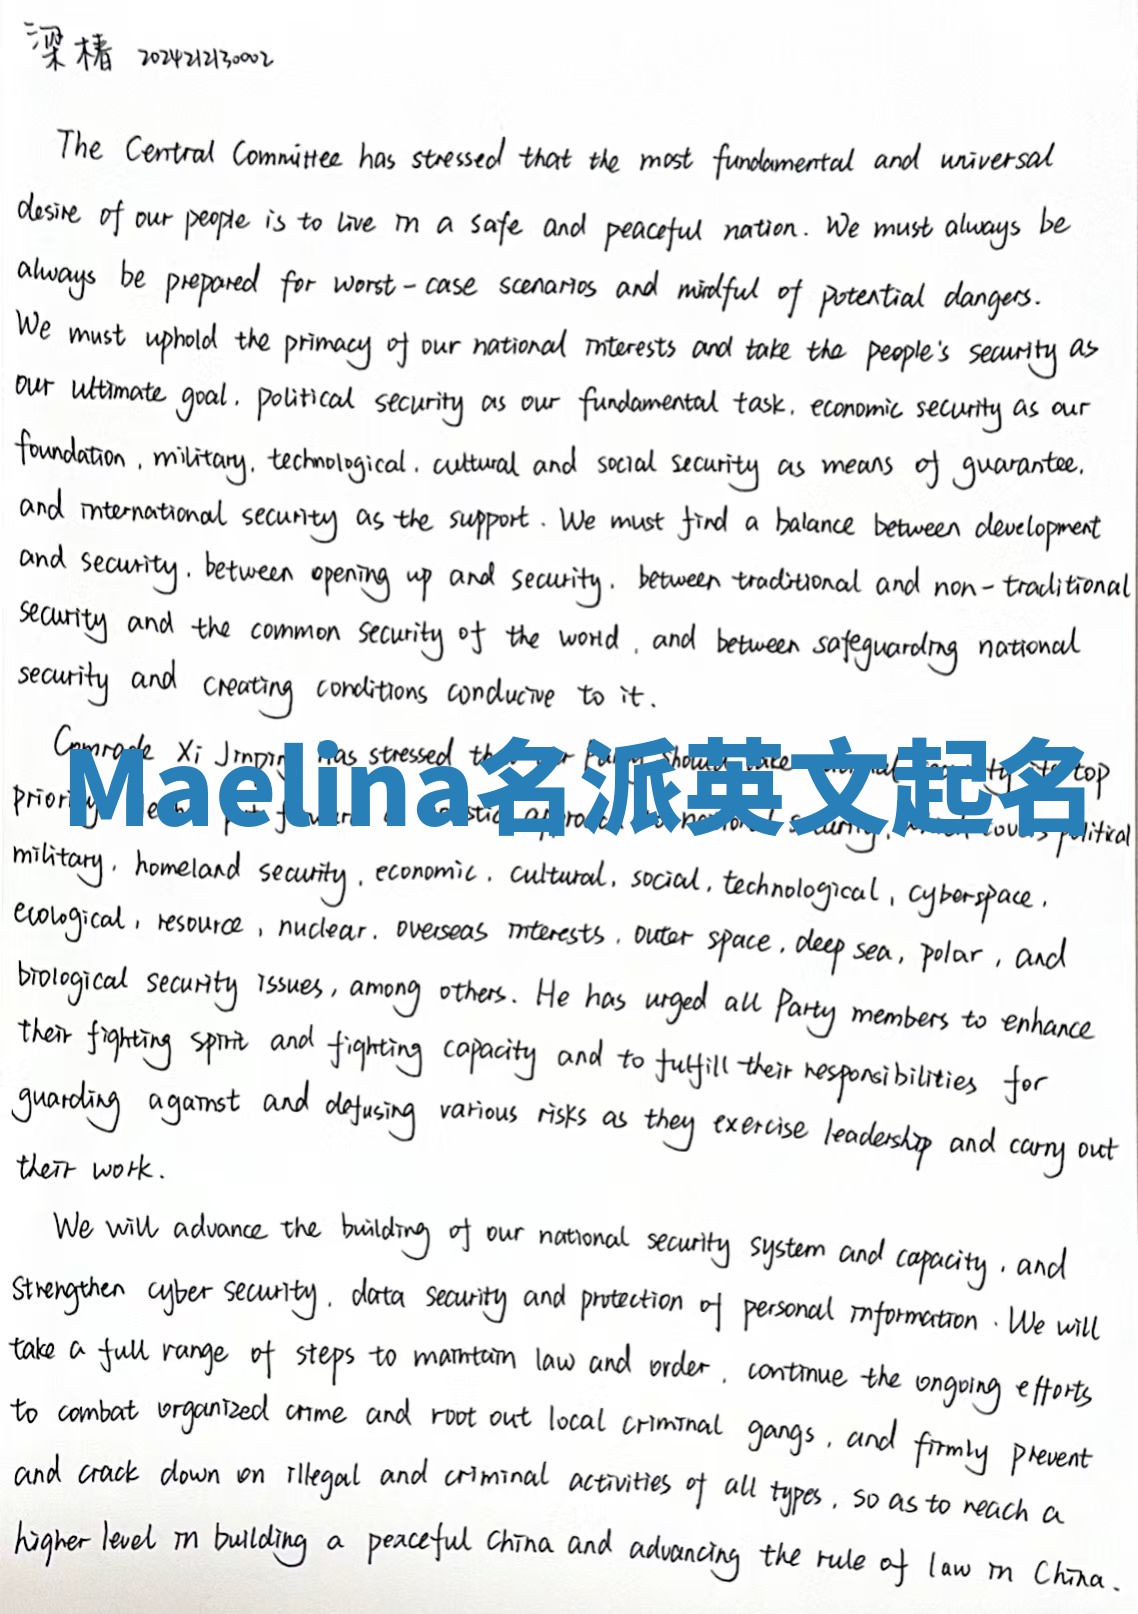 梁椿 2024212130002
The Central Committee has stressed that the most fundamental and universal
desire of our people is to live in a safe and peaceful nation. We must always be
always be prepared for worst-case scenarios and mindful of potential dangers.
We must uphold the primacy of our national interests and take the people's security as
our ultimate goal, political security as our fundamental task, economic security as our
foundation, military, technological, cultural and social security as means of guarantee,
and international security as the support. We must find a balance between development
and security, between opening up and security, between traditional and non-traditional
security and the common security of the world, and between safeguarding national
security and creating conditions conducive to it.
Comrade Xi Jinping has stressed should top
Maelina名派英文起名
security, covers political
military, homeland security, economic, cultural, social, technological, cyberspace,
ecological, resource, nuclear, overseas interests, outer space, deep sea, polar, and
biological security issues, among others. He has urged all Party members to enhance
their fighting spirit and fighting capacity and to fulfill their responsibilities for
guarding against and defusing various risks as they exercise leadership and carry out
their work.
We will advance the building of our national security system and capacity, and
strengthen cyber security, data security and protection of personal information. We will
take a full range of steps to maintain law and order, continue the ongoing efforts
to combat organized crime and root out local criminal gangs, and firmly prevent
and crack down on illegal and criminal activities of all types, so as to reach a
higher level in building a peaceful China and advancing the rule of law in China.